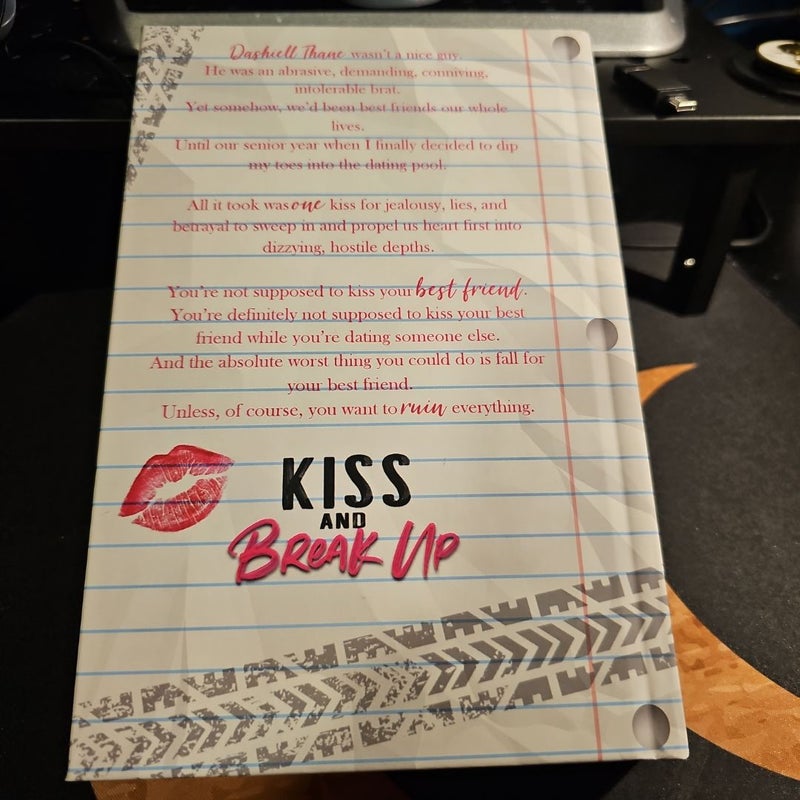 Dashiell Thane wasn't a nice guy.
He was an abrasive, demanding, conniving,
intolerable brat.
Yet somehow, we'd been best friends our whole
lives.
Until our senior year when I finally decided to dip
my toes into the dating pool.
All it took was one kiss for jealousy, lies, and
betrayal to sweep in and propel us heart first into
dizzying, hostile depths.
You're not supposed to kiss your best friend.
You're definitely not supposed to kiss your best
friend while you're dating someone else.
And the absolute worst thing you could do is fall for
your best friend.
Unless, of course, you want to ruin everything.
KISS
AND
BREAK UP